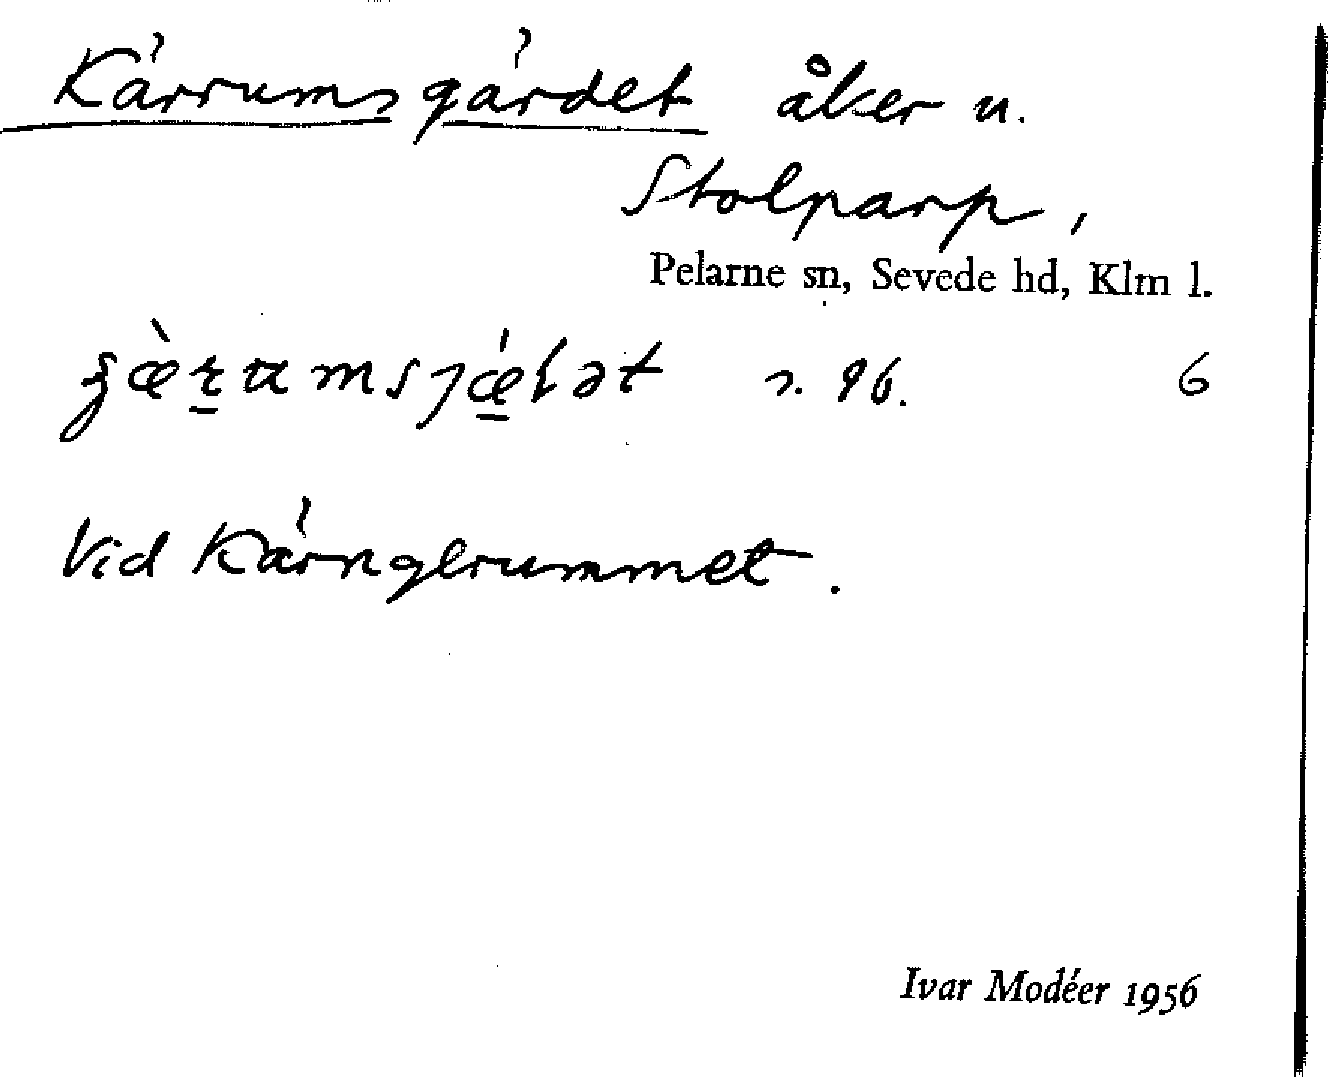 Kärrumsgärdet åker u.
Stolparp,
Pelarne sn, Sevede hd, Klm l.
s. 96. 6
Vid Kärnglrummet.
Ivar Modéer 1956